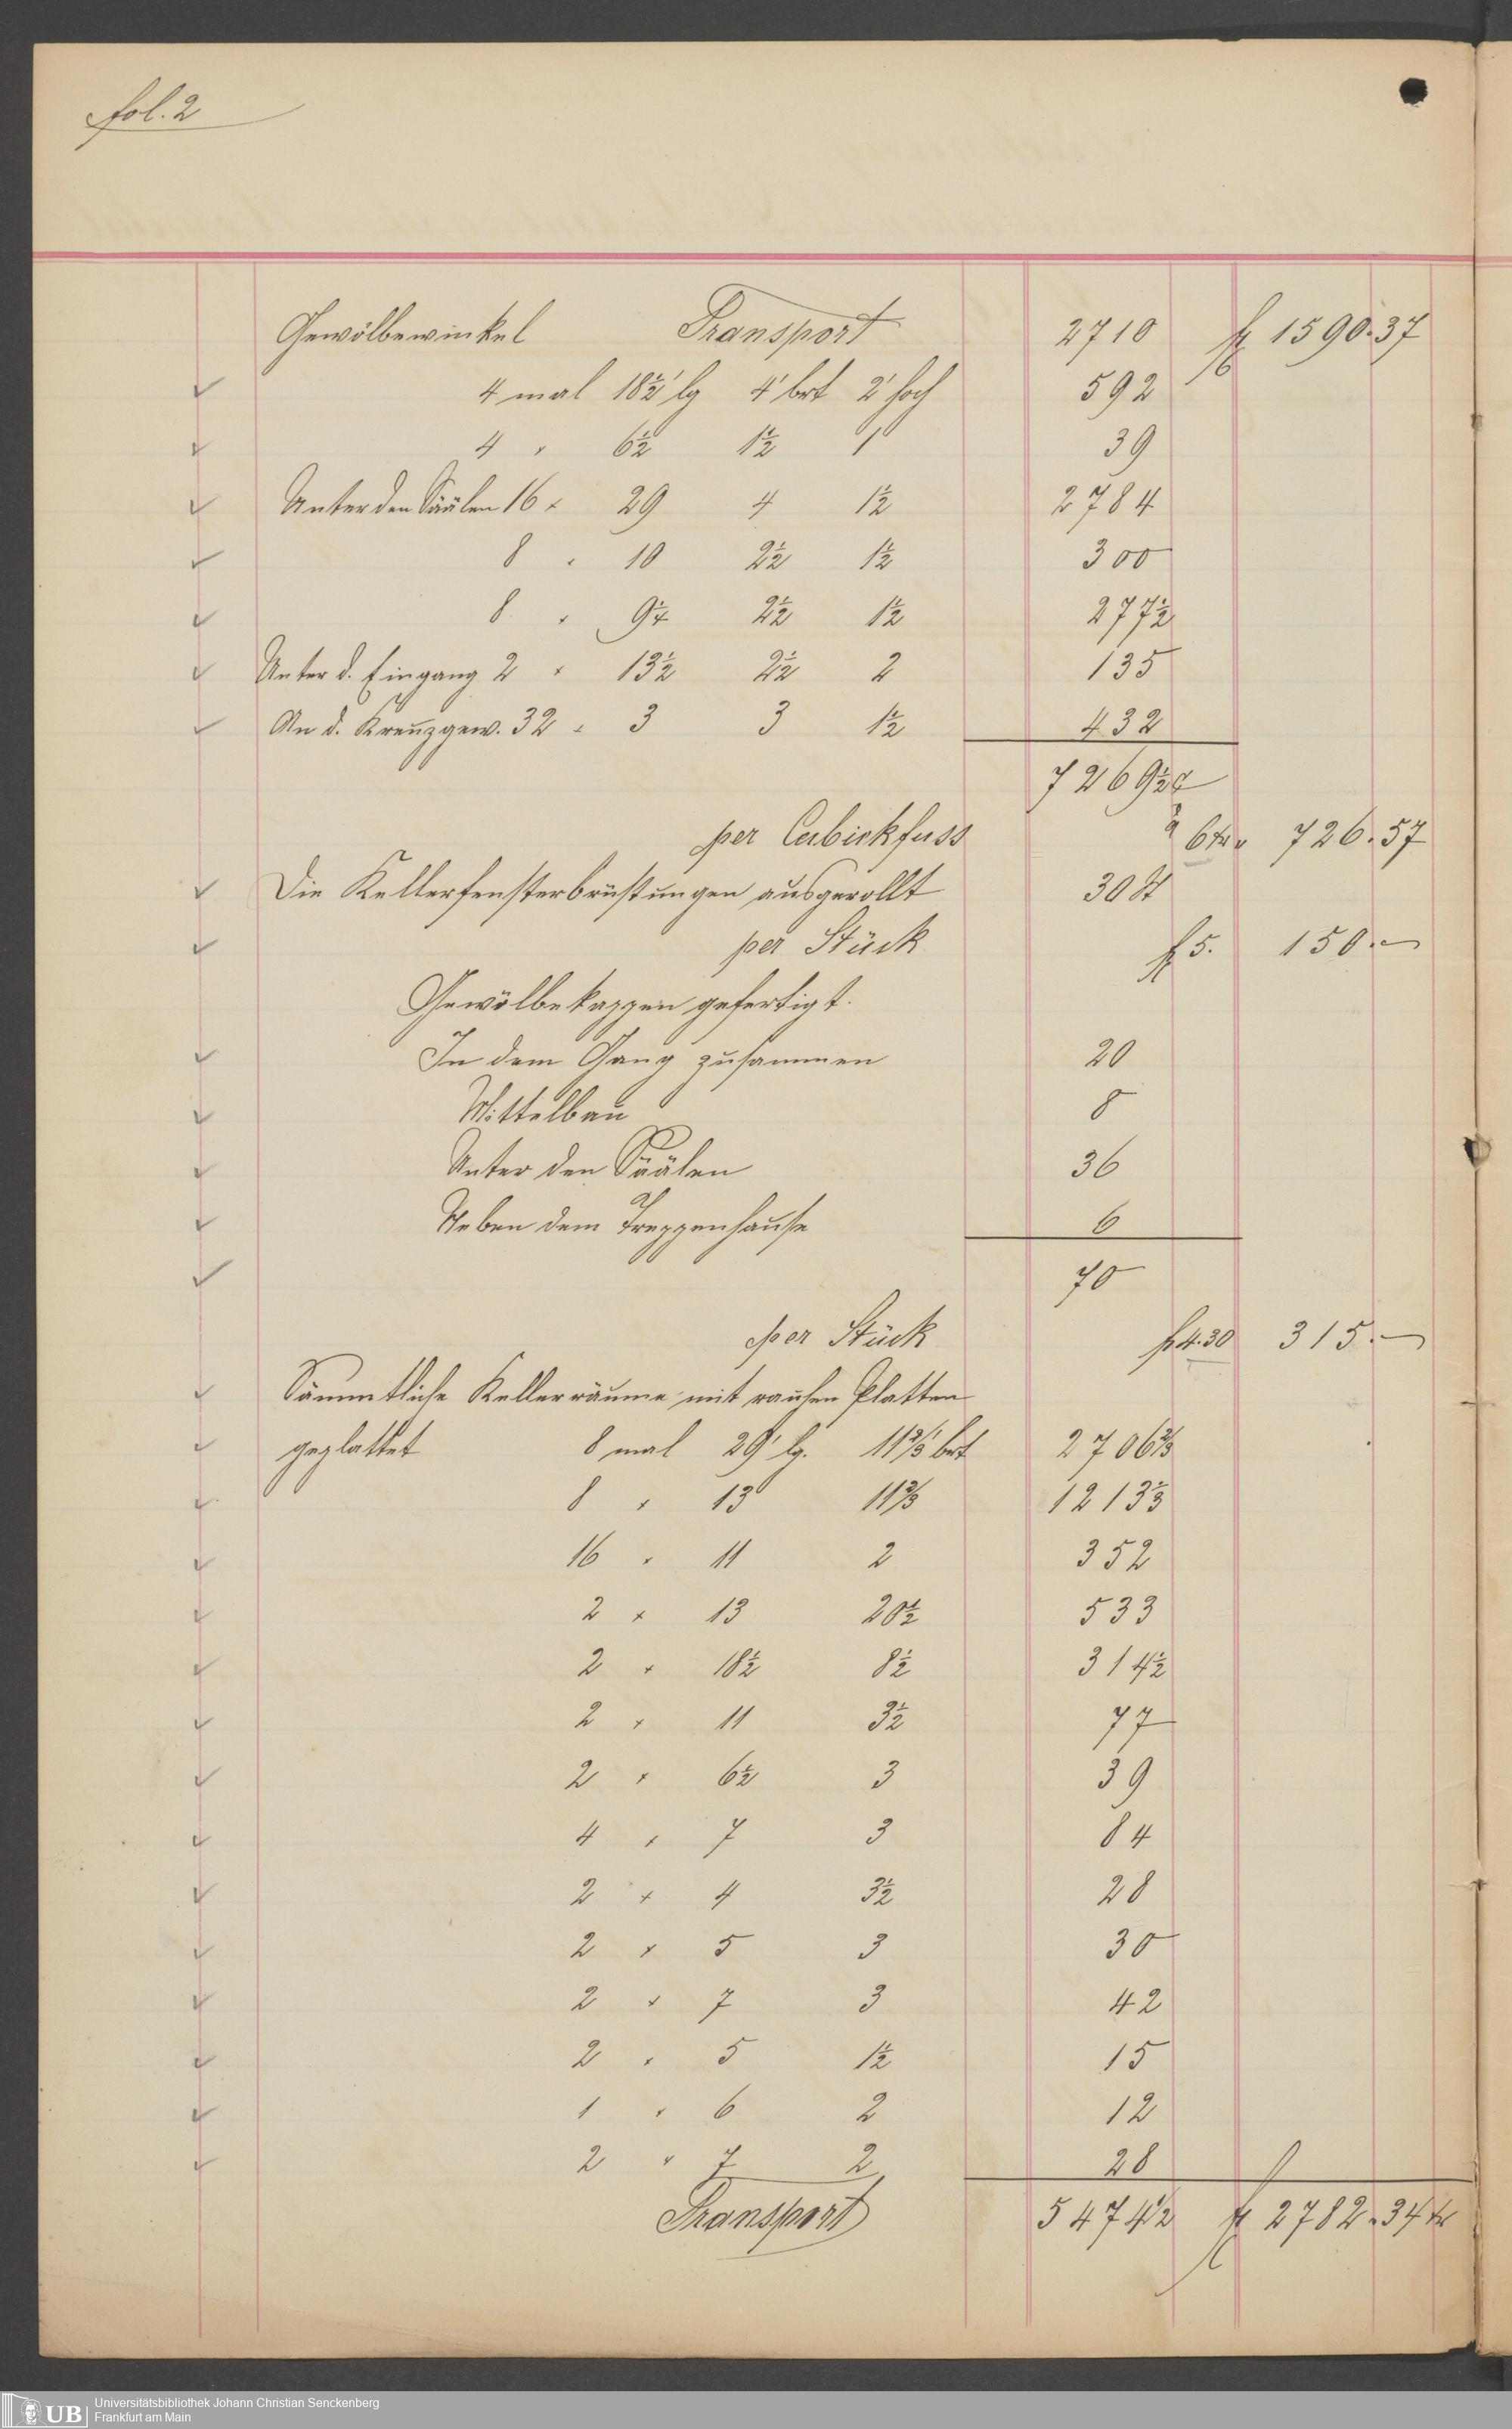 fol. 2
Gewölbewinkel Transport 2710 fl 1590.37
4 mal 18½' lg 4' brt 2' hoch 592
4 " 6½ 1½ 1 39
Unter den Säälen 16 " 29 4 1½ 2784
8 " 10 2½ 1½ 300
8 " 9¼ 2½ 1½ 277½
Unter d. Eingang 2 " 13½ 2½ 2 135
An d. Kreuzgew. 32 " 3 3 1½ 432
7269½
per Cubickfuss à 6 kr " 726.57
Die Kellerfensterbrüstungen ausgerollt 30 St
per Stück fl 5. 150.—
Gewölbekappen gefertigt.
In dem Gang zusammen 20
Mittelbau 8
Unter den Säälen 36
Neben dem Treppenhause 6
70
per Stück fl 4.30 315.—
Sämmtliche Kellerräume mit rauhen Platten
geplattet 8 mal 29' lg. 11⅔' brt 2706⅔
8 " 13 11⅔ 1213⅓
16 " 11 2 352
2 " 13 20½ 533
2 " 18½ 8½ 314½
2 " 11 3½ 77
2 " 6½ 3 39
4 " 7 3 84
2 " 4 3½ 28
2 " 5 3 30
2 " 7 3 42
2 " 5 1½ 15
1 " 6 2 12
2 " 7 2 28
Transport 5474½ fl 2782.34 kr
UB
Universitätsbibliothek Johann Christian Senckenberg
Frankfurt am Main